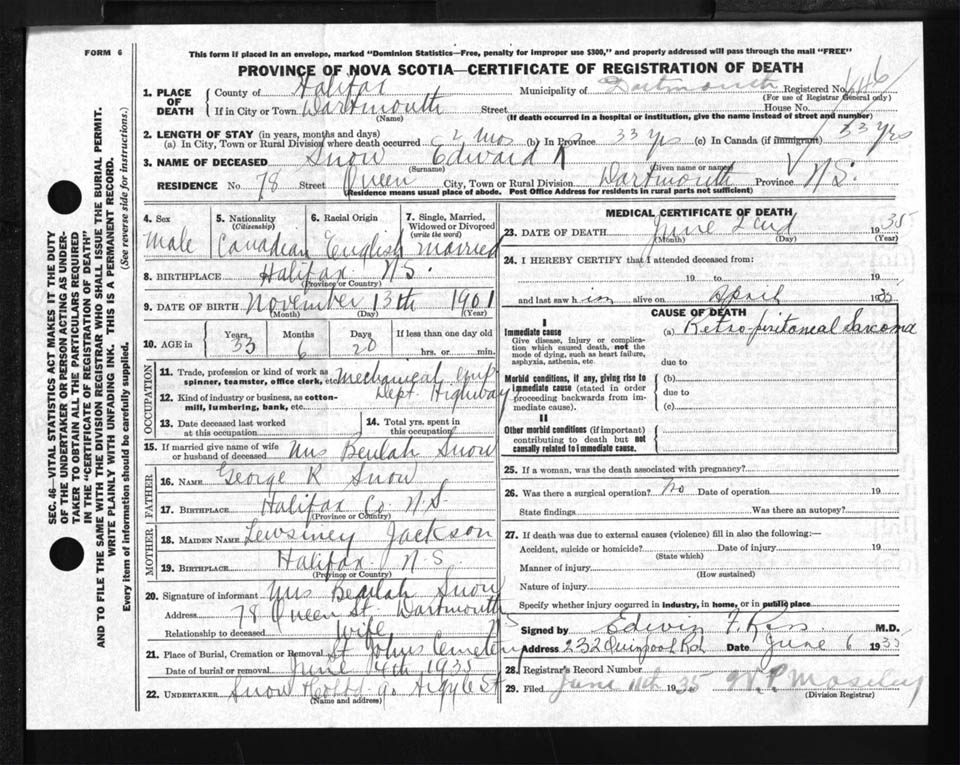 FORM 6
This form if placed in an envelope, marked "Dominion Statistics—Free, penalty for improper use $300," and properly addressed will pass through the mail "FREE"
PROVINCE OF NOVA SCOTIA—CERTIFICATE OF REGISTRATION OF DEATH
SEC. 46—VITAL STATISTICS ACT MAKES IT THE DUTY
OF THE UNDERTAKER OR PERSON ACTING AS UNDER-
TAKER TO OBTAIN ALL THE PARTICULARS REQUIRED
IN THE "CERTIFICATE OF REGISTRATION OF DEATH"
AND TO FILE THE SAME WITH THE DIVISION REGISTRAR WHO SHALL ISSUE THE BURIAL PERMIT.
WRITE PLAINLY WITH UNFADING INK. THIS IS A PERMANENT RECORD.
Every item of information should be carefully supplied. (See reverse side for instructions.)
1. PLACE OF DEATH
County of Halifax Municipality of Dartmouth Registered No.
(For use of Registrar General only)
If in City or Town Dartmouth Street House No.
(Name) (If death occurred in a hospital or institution, give the name instead of street and number)
2. LENGTH OF STAY (in years, months and days)
(a) In City, Town or Rural Division where death occurred 2 mos (b) In Province 33 yrs (c) In Canada (if immigrant) 33 yrs
3. NAME OF DECEASED Snow Edward R
(Surname) (Given name or names)
RESIDENCE No. 78 Street Queen City, Town or Rural Division Dartmouth Province N.S.
(Residence means usual place of abode. Post Office Address for residents in rural parts not sufficient)
4. Sex
Male
5. Nationality
(Citizenship)
Canadian
6. Racial Origin
English
7. Single, Married,
Widowed or Divorced
(write the word)
married
8. BIRTHPLACE Halifax N.S.
(Province or Country)
9. DATE OF BIRTH November 13th 1901
(Month) (Day) (Year)
10. AGE in
Years 33
Months 6
Days 20
If less than one day old
hrs. or min.
OCCUPATION
11. Trade, profession or kind of work as
spinner, teamster, office clerk, etc. Mechanical
12. Kind of industry or business, as cotton-
mill, lumbering, bank, etc. Dept. Highway
13. Date deceased last worked
at this occupation
14. Total yrs. spent in
this occupation
15. If married give name of wife
or husband of deceased Mrs Beulah Snow
FATHER
16. NAME George R Snow
17. BIRTHPLACE Halifax Co N.S.
(Province or Country)
MOTHER
18. MAIDEN NAME Jackson
19. BIRTHPLACE Halifax N S
(Province or Country)
20. Signature of informant Mrs Beulah Snow
Address 78 Queen St Dartmouth
Relationship to deceased wife
21. Place of Burial, Cremation or Removal St Johns Cemetery
Date of burial or removal June 4th 1935
22. UNDERTAKER Snow Argyle St
(Name and address)
MEDICAL CERTIFICATE OF DEATH
23. DATE OF DEATH June 1935
(Month) (Day) (Year)
24. I HEREBY CERTIFY that I attended deceased from:
19 to 19
and last saw him alive on April 1935
CAUSE OF DEATH
I
Immediate cause
Give disease, injury or complica-
tion which caused death, not the
mode of dying, such as heart failure,
asphyxia, asthenia, etc.
(a) Retro-peritoneal Sarcoma
due to
Morbid conditions, if any, giving rise to
immediate cause (stated in order
proceeding backwards from im-
mediate cause).
(b)
due to
(c)
II
Other morbid conditions (if important)
contributing to death but not
causally related to immediate cause.
25. If a woman, was the death associated with pregnancy?
26. Was there a surgical operation? no Date of operation 19
State findings Was there an autopsy?
27. If death was due to external causes (violence) fill in also the following:—
Accident, suicide or homicide? Date of injury 19
(State which)
Manner of injury
(How sustained)
Nature of injury
Specify whether injury occurred in industry, in home, or in public place
Signed by Edwin F. Ross M.D.
Address 232 Quinpool Rd Date June 6 1935
28. Registrar's Record Number
29. Filed June 11th 1935 W.P. Moseley
(Division Registrar)